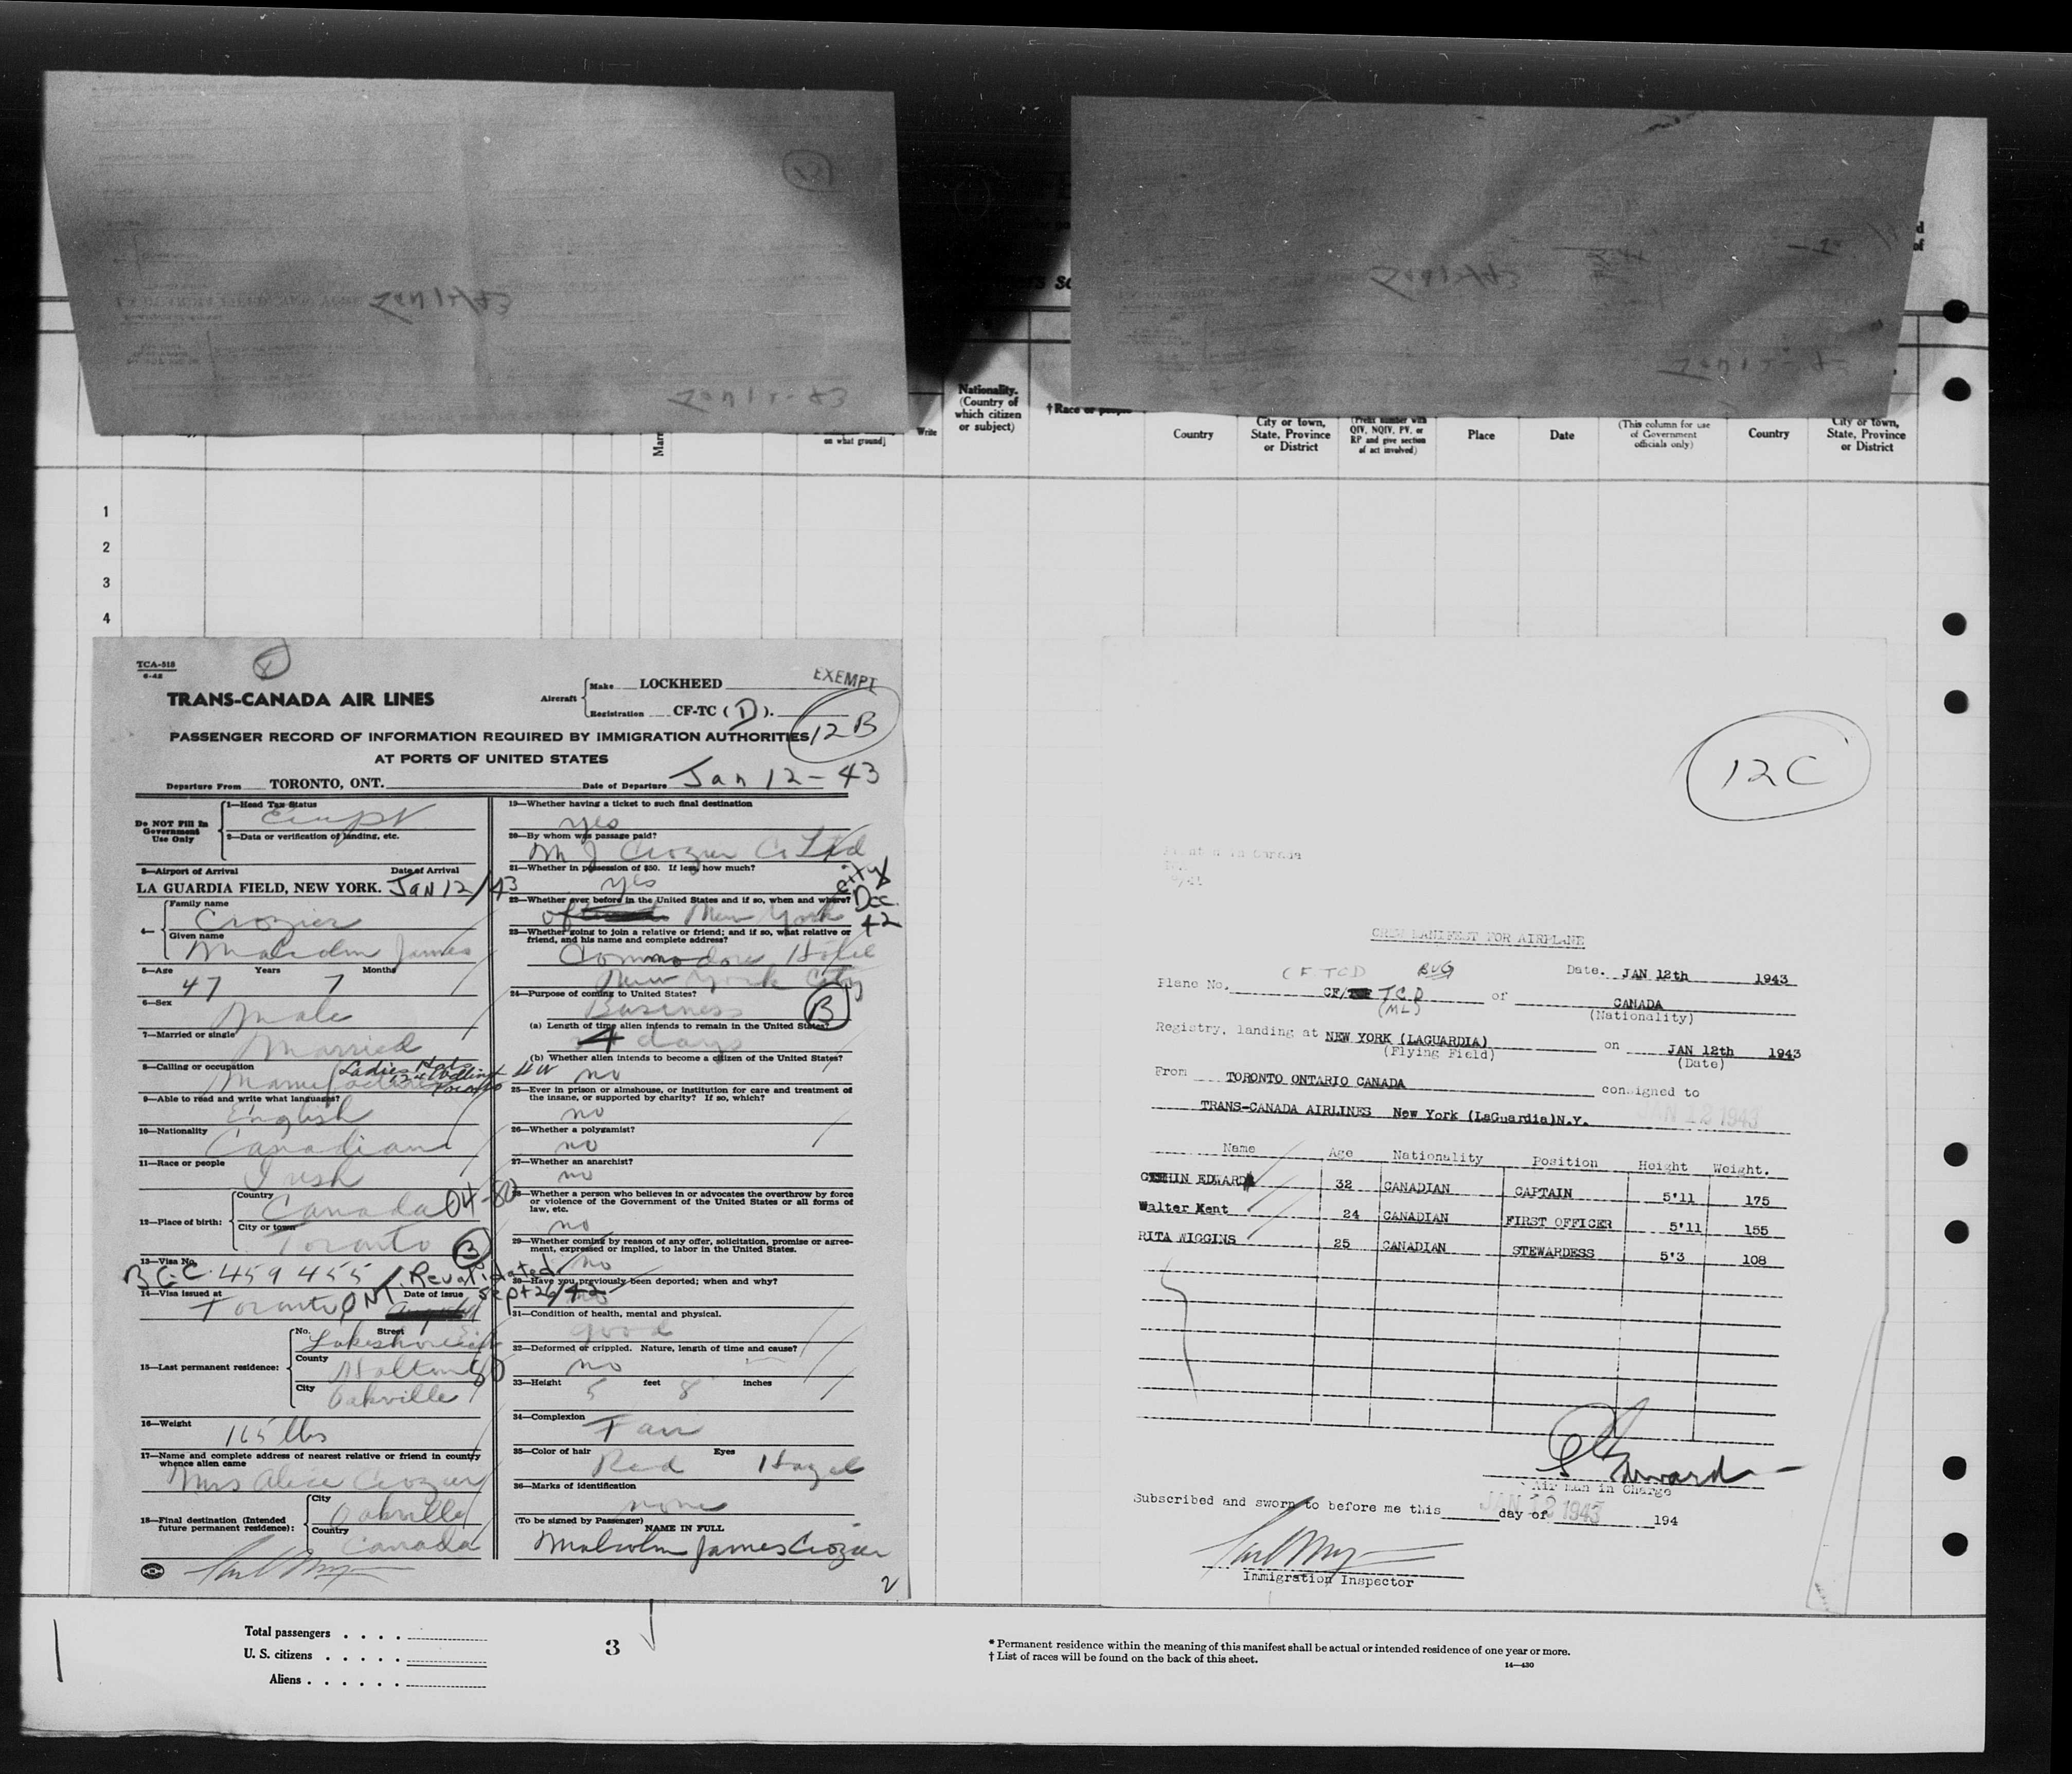 Jan 12/43
Jan 12-43
Nationality.
(Country of
which citizen
or subject)
†Race or people
on what ground]
Write
Country
City or town,
State, Province
or District
(Prefix number with
QIV, NQIV, PV, or
RP and give section
of act involved)
Place
Date
(This column for use
of Government
officials only)
Country
City or town,
State, Province
or District
1
2
3
4
TCA-518
6-42
TRANS-CANADA AIR LINES
Aircraft
Make LOCKHEED
Registration CF-TC (D).
EXEMPT
12B
PASSENGER RECORD OF INFORMATION REQUIRED BY IMMIGRATION AUTHORITIES
AT PORTS OF UNITED STATES
Departure From TORONTO, ONT. Date of Departure Jan 12-43
Do NOT Fill In
Government
Use Only
1—Head Tax Status
2—Data or verification of landing, etc.
3—Airport of Arrival Date of Arrival
LA GUARDIA FIELD, NEW YORK. JAN 12/43
4—
Family name
Crozier
Given name
Malcolm James
5—Age Years Months
47 7
6—Sex
Male
7—Married or single
Married
8—Calling or occupation
9—Able to read and write what languages?
English
10—Nationality
Canadian
11—Race or people
Irish
12—Place of birth:
Country
Canada 04-80
City or town
Toronto
B
13—Visa No.
B.C.C. 459455 Revalidated
14—Visa issued at Date of issue Sept 26/42
Toronto ONT
15—Last permanent residence:
No. Street
Lakeshore
County
Halton
City
Oakville
16—Weight
165 lbs
17—Name and complete address of nearest relative or friend in country
whence alien came
Mrs Alice Crozier
18—Final destination (Intended
future permanent residence):
City
Oakville
Country
Canada
19—Whether having a ticket to such final destination
yes
20—By whom was passage paid?
M J Crozier Co Ltd
21—Whether in possession of $50. If less, how much?
yes
22—Whether ever before in the United States and if so, when and where?
New York City Dec 42
23—Whether going to join a relative or friend; and if so, what relative or
friend, and his name and complete address?
Commodore Hotel
New York City
24—Purpose of coming to United States?
Business
B
(a) Length of time alien intends to remain in the United States?
4 days
(b) Whether alien intends to become a citizen of the United States?
no
25—Ever in prison or almshouse, or institution for care and treatment of
the insane, or supported by charity? If so, which?
no
26—Whether a polygamist?
no
27—Whether an anarchist?
no
28—Whether a person who believes in or advocates the overthrow by force
or violence of the Government of the United States or all forms of
law, etc.
no
29—Whether coming by reason of any offer, solicitation, promise or agree-
ment, expressed or implied, to labor in the United States.
no
30—Have you previously been deported; when and why?
no
31—Condition of health, mental and physical.
good
32—Deformed or crippled. Nature, length of time and cause?
no
33—Height 5 feet 8 inches
34—Complexion
Fair
35—Color of hair Eyes
Red Hazel
36—Marks of identification
none
(To be signed by Passenger)
NAME IN FULL
Malcolm James Crozier
2
12C
Printed in Canada
CREW MANIFEST FOR AIRPLANE
Date. JAN 12th 1943
CF TCD BUG
Plane No. CF/ TCD of CANADA
(ML) (Nationality)
Registry, landing at NEW YORK (LAGUARDIA) on JAN 12th 1943
(Flying Field) (Date)
From TORONTO ONTARIO CANADA consigned to
TRANS-CANADA AIRLINES New York (LaGuardia)N.Y.
JAN 12 1943
Name Age Nationality Position Height Weight.
EDWARD 32 CANADIAN CAPTAIN 5'11 175
Walter Kent 24 CANADIAN FIRST OFFICER 5'11 155
RITA WIGGINS 25 CANADIAN STEWARDESS 5'3 108
Air Man in Charge
Subscribed and sworn to before me this day of 194
JAN 12 1943
Immigration Inspector
Total passengers . . . .
U. S. citizens . . . . .
Aliens . . . . . .
3
* Permanent residence within the meaning of this manifest shall be actual or intended residence of one year or more.
† List of races will be found on the back of this sheet.
14—430